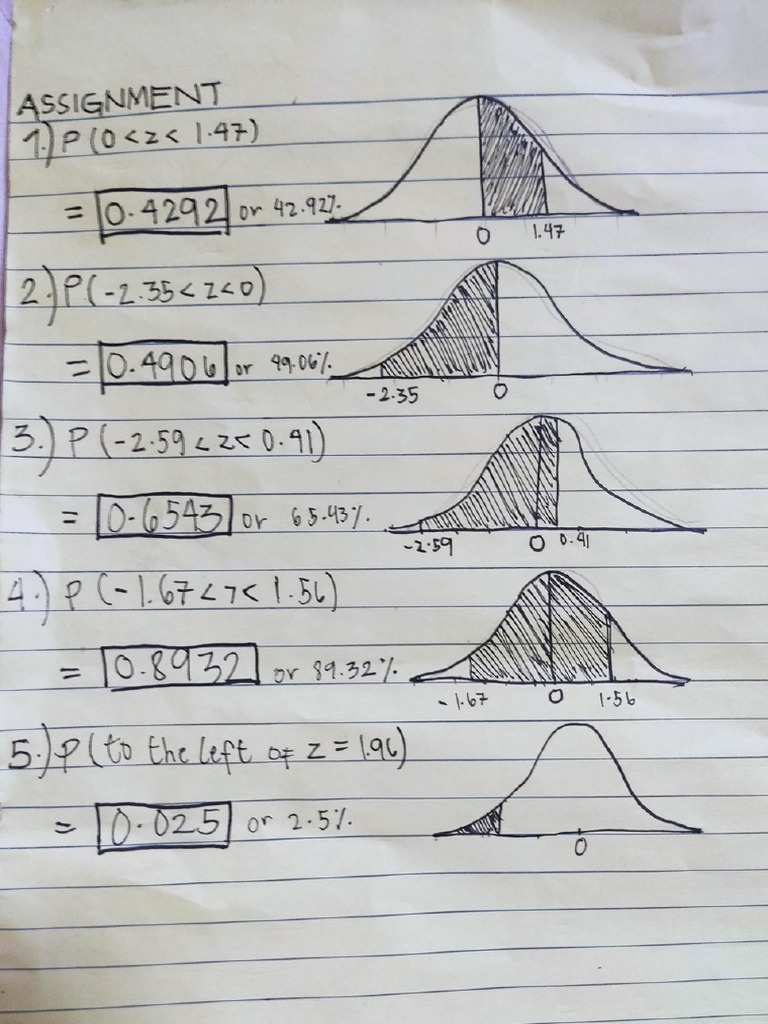 ASSIGNMENT
1.) P(0 < z < 1.47)
= 0.4292 or 42.92%
0 1.47
2.) P(-2.35 < z < 0)
= 0.4906 or 49.06%
-2.35 0
3.) P(-2.59 < z < 0.41)
= 0.6543 or 65.43%
-2.59 0 0.41
4.) P(-1.67 < z < 1.56)
= 0.8932 or 89.32%
-1.67 0 1.56
5.) P(to the left of z = 1.96)
= 0.025 or 2.5%
0